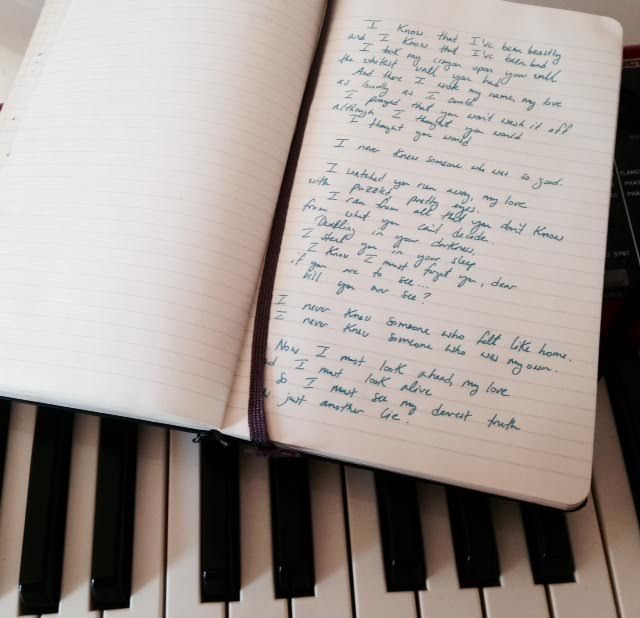 I know that I've been beastly
and I know that I've been bad
I took my crayon upon your wall
the whitest wall you had
And there I wrote my name, my love
as loudly as I could
I prayed that you won't wash it off
although I thought you would
I thought you would
I never knew someone who was so good.
I watched you run away, my love
with puzzled pretty eyes.
I ran from all that you don't know
from what you can't decide.
Dwelling in your darkness.
I steal you in your sleep
I know I must forget you, dear
if you are to see...
Will you ever see?
I never knew someone who felt like home.
I never knew someone who was my own.
Now I must look ahead, my love
I must look alive
So I must see my dearest truth
just another lie.
SYNT